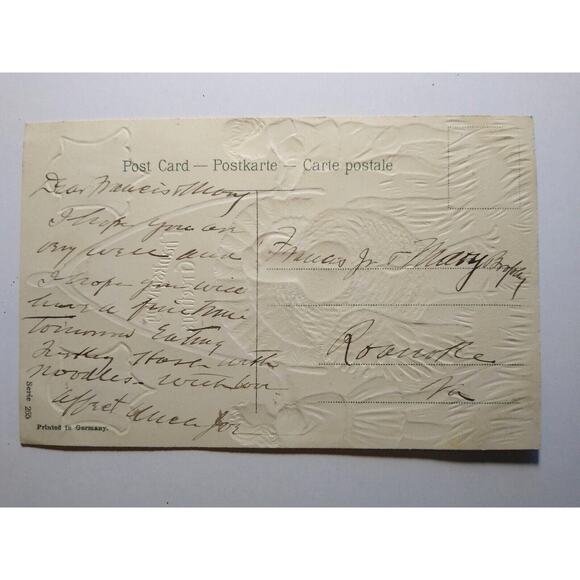 Post Card — Postkarte — Carte postale
Dear Francis & Mary
I hope you are
very well and
I hope you will
have a fine time
tomorrow Eating
Turkey Hash with
Noodles. with love
affect Uncle Joe
Francis Jr & Mary Brophy
Roanoke
Va
Serie 265
Printed in Germany.